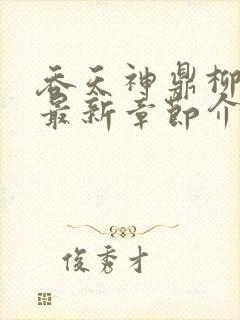 吞天神鼎柳
最新章節介
俊秀才